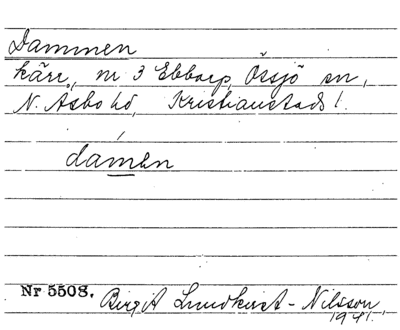 Dammen
kärr, nr 3 Ebbarp, Össjö sn,
N. Åsbo hd, Kristianstads l.
damən
Nr 5508. Birgit Lundkvist-Nilsson
1941.